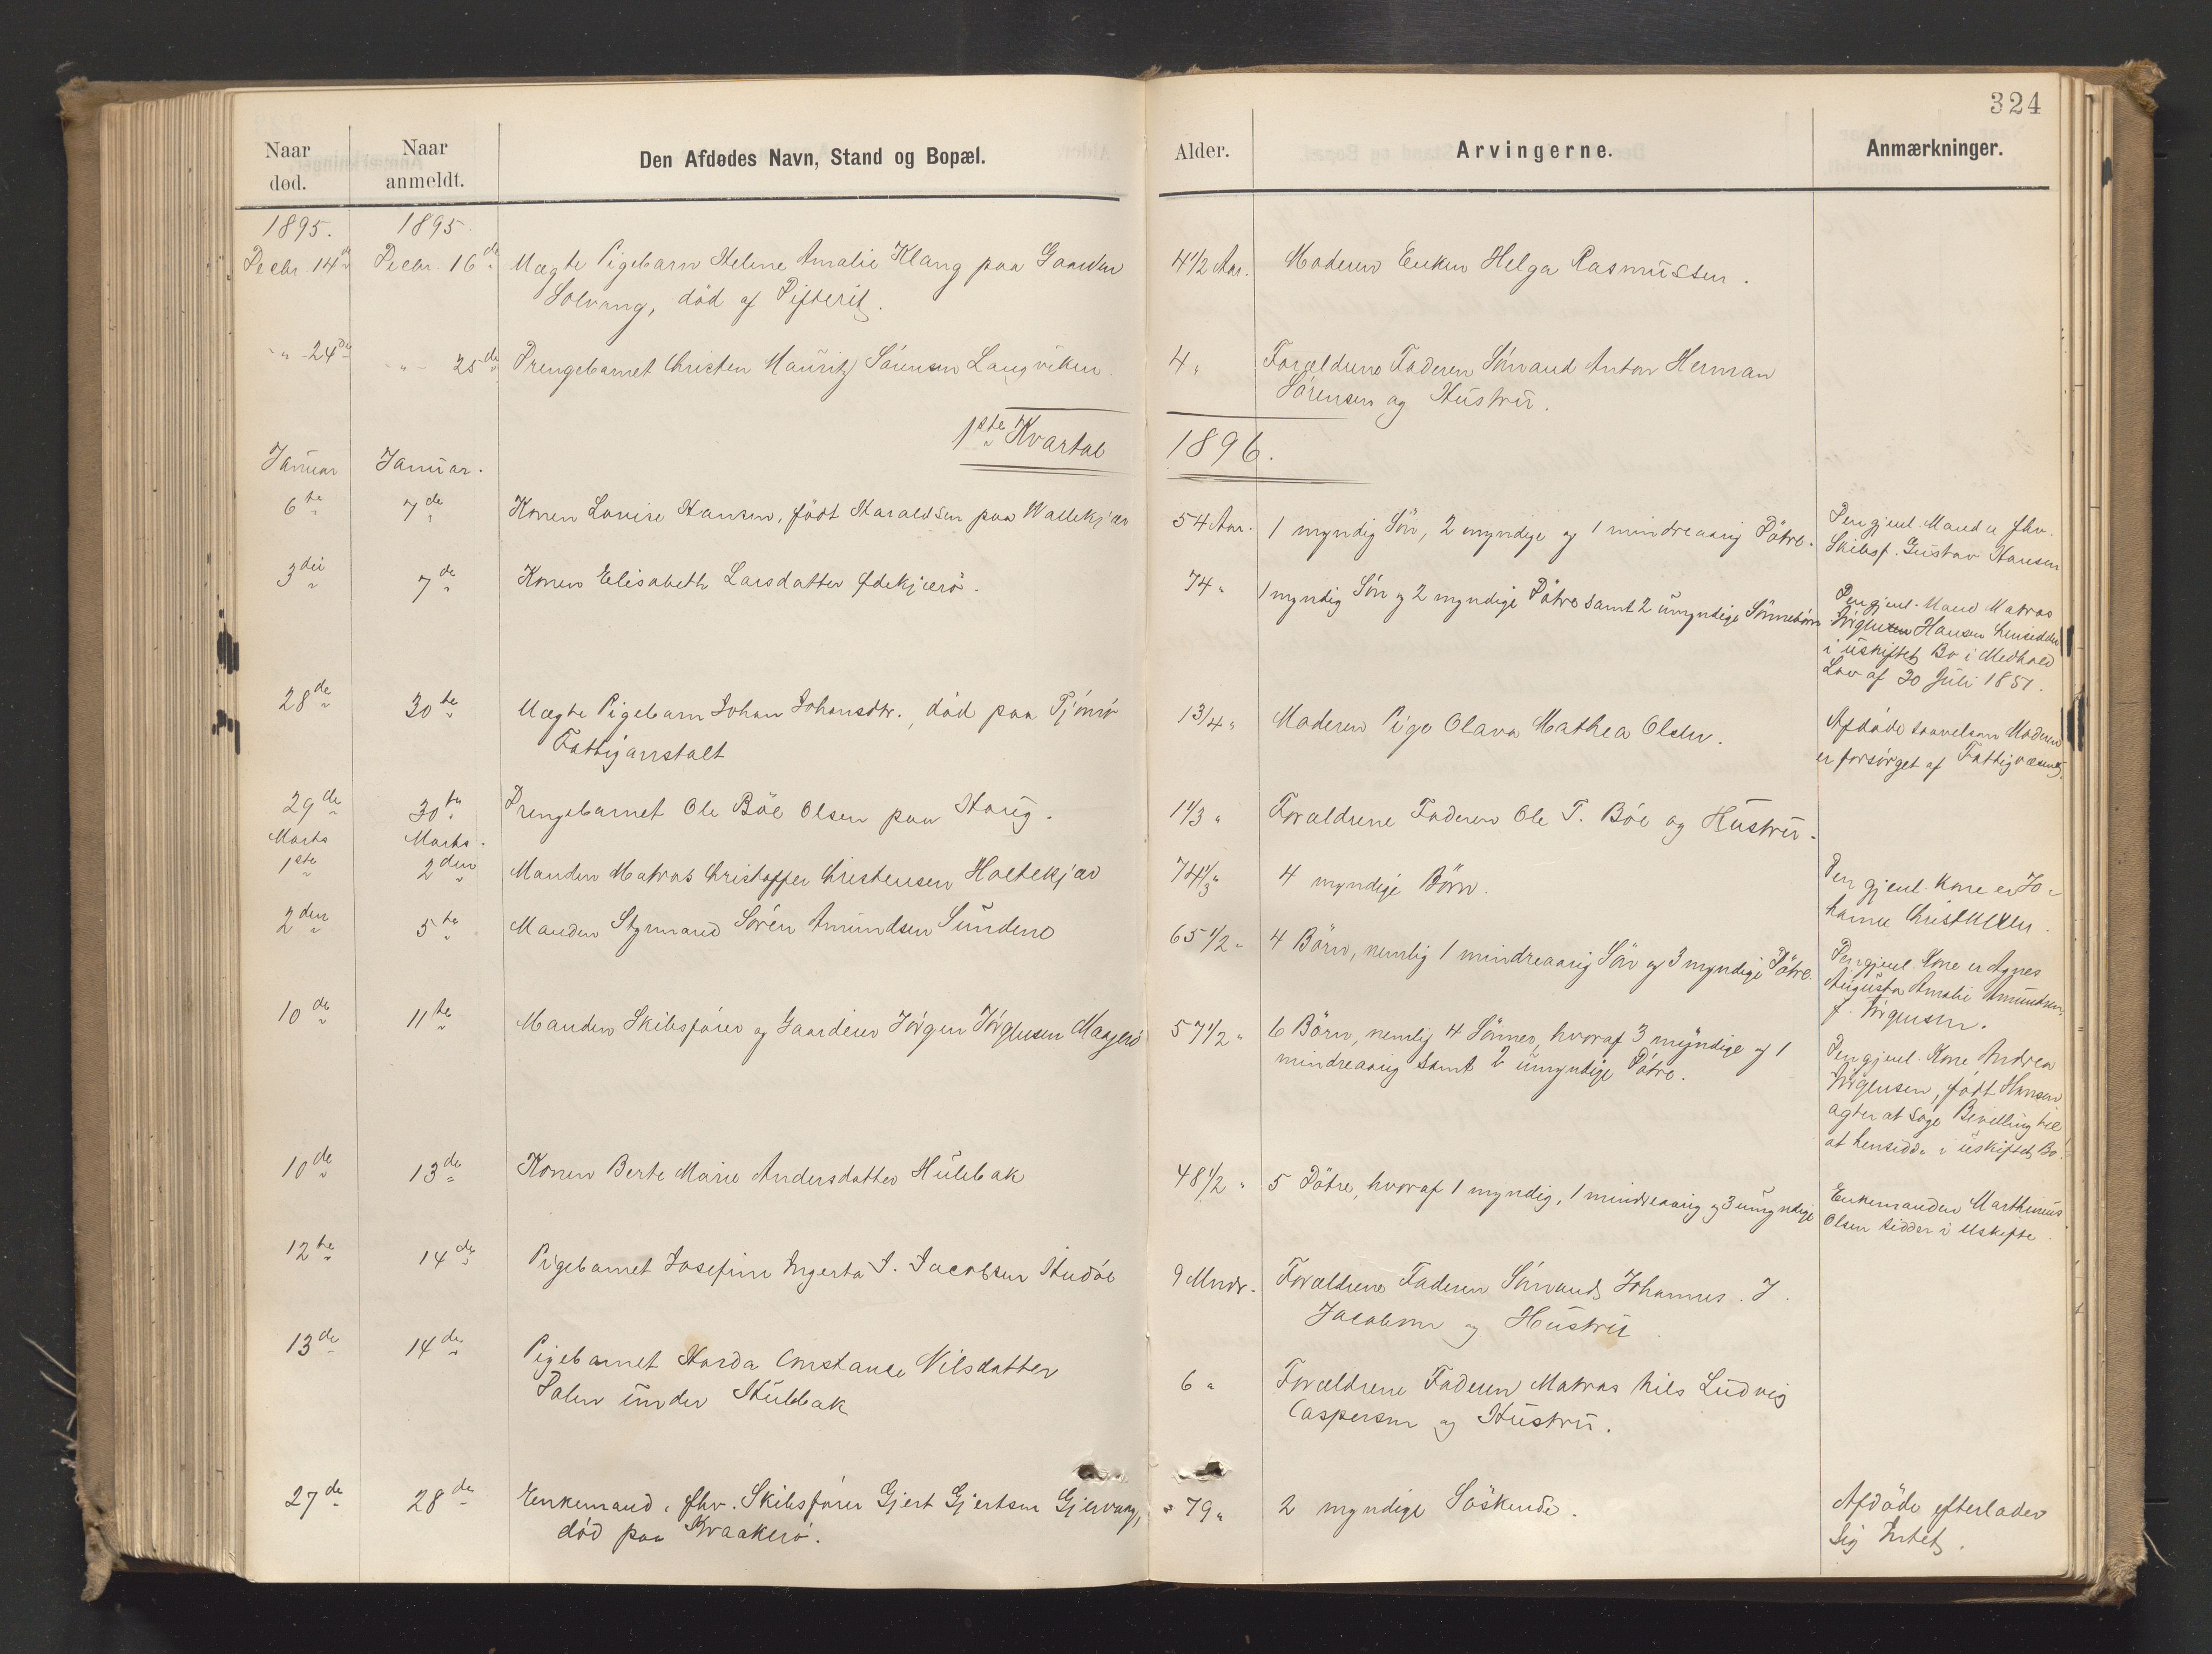 324
Naar død. Naar anmeldt. Den Afdødes Navn, Stand og Bopæl. Alder. Arvingerne. Anmærkninger.
1895. 1895.
Decbr. 14de Decbr. 16de Uægte Pigebarn Helene Amalie Klang paa Gaarden 4 1/2 Aar. Moderen Enken Helga Rasmussen.
Solvang, død af Difterit.
" 24de " 25de Drengebarnet Christen Mauritz Sörensen Langviken. 4 " Forældrene Faderen Sömand Anton Herman
Sörensen og Hustru.
1ste Kvartal 1896.
Januar Januar.
6te 7de Konen Lovise Hansen, födt Haraldsen paa Wallekjær 54 Aar. 1 myndig Sön, 2 myndige og 1 mindreaarig Dötre. Den gjenl. Mand er fhv.
Skibsf. Gustav Hansen
3die 7de Konen Elisabeth Larsdatter 74 " 1 myndig Sön og 2 myndige Dötre samt 2 umyndige Sönnebörn Den gjenl. Mand Matros
Hansen hensidder
i uskiftet Bo i Medhold
Lov af 30 Juli 1851.
28de 30te Uægte Pigebarn Johan Johansdtr., död paa Tjömö 1 3/4 " Moderen Pige Olava Mathea Olsen. Afdöde saavelsom Moderen
Fattiganstalt er forsörget af Fattigvæsenet.
29de 30te Drengebarnet Ole Böe Olsen paa Haug. 1 1/3 " Forældrene Faderen Ole T. Böe og Hustru.
Marts Marts.
1ste 2den Manden Matros Christoffer Christensen Holtekjær 74 1/3 " 4 myndige Börn. Den gjenl. Kone er Jo-
hanne Christensen.
2den 5te Manden Styrmand Sören Amundsen Sundene 65 1/2 " 4 Börn, nemlig 1 mindreaarig Sön og 3 myndige Dötre. Den gjenl. Kone er Agnes
Augusta Amalie Amundsen
f. Jörgensen.
10de 11te Manden Skibsförer og Gaardeier Jörgen Jörgensen Magerö 57 1/2 " 6 Börn, nemlig 4 Sönner, hvoraf 3 myndige og 1
mindreaarig samt 2 umyndige Dötre. Den gjenl. Kone Andrea
Jörgensen, födt Hansen
agter at söge Bevilling til
at hensidde i uskiftet Bo.
10de 13de Konen Berte Marie Andersdatter Hulebak 48 1/2 " 5 Dötre, hvoraf 1 myndig, 1 mindreaarig og 3 umyndige Enkemanden Marthinus
Olsen sidder i Uskifte.
12te 14de Pigebarnet Josefine Ingerta J. Jacobsen 9 Mndr. Forældrene Faderen Sömand Johannes J.
Jacobsen og Hustru
13de 14de Pigebarnet Harda Constance Nilsdatter
Dalen under Hulebak 6 " Forældrene Faderen Matros Nils Ludvig
Caspersen og Hustru.
27de 28de Enkemand, fhv. Skibsförer Gjert Gjertsen Gjervaag, 79 " 2 myndige Söskende. Afdöde efterlader
död paa Kraakerö. sig Intet.